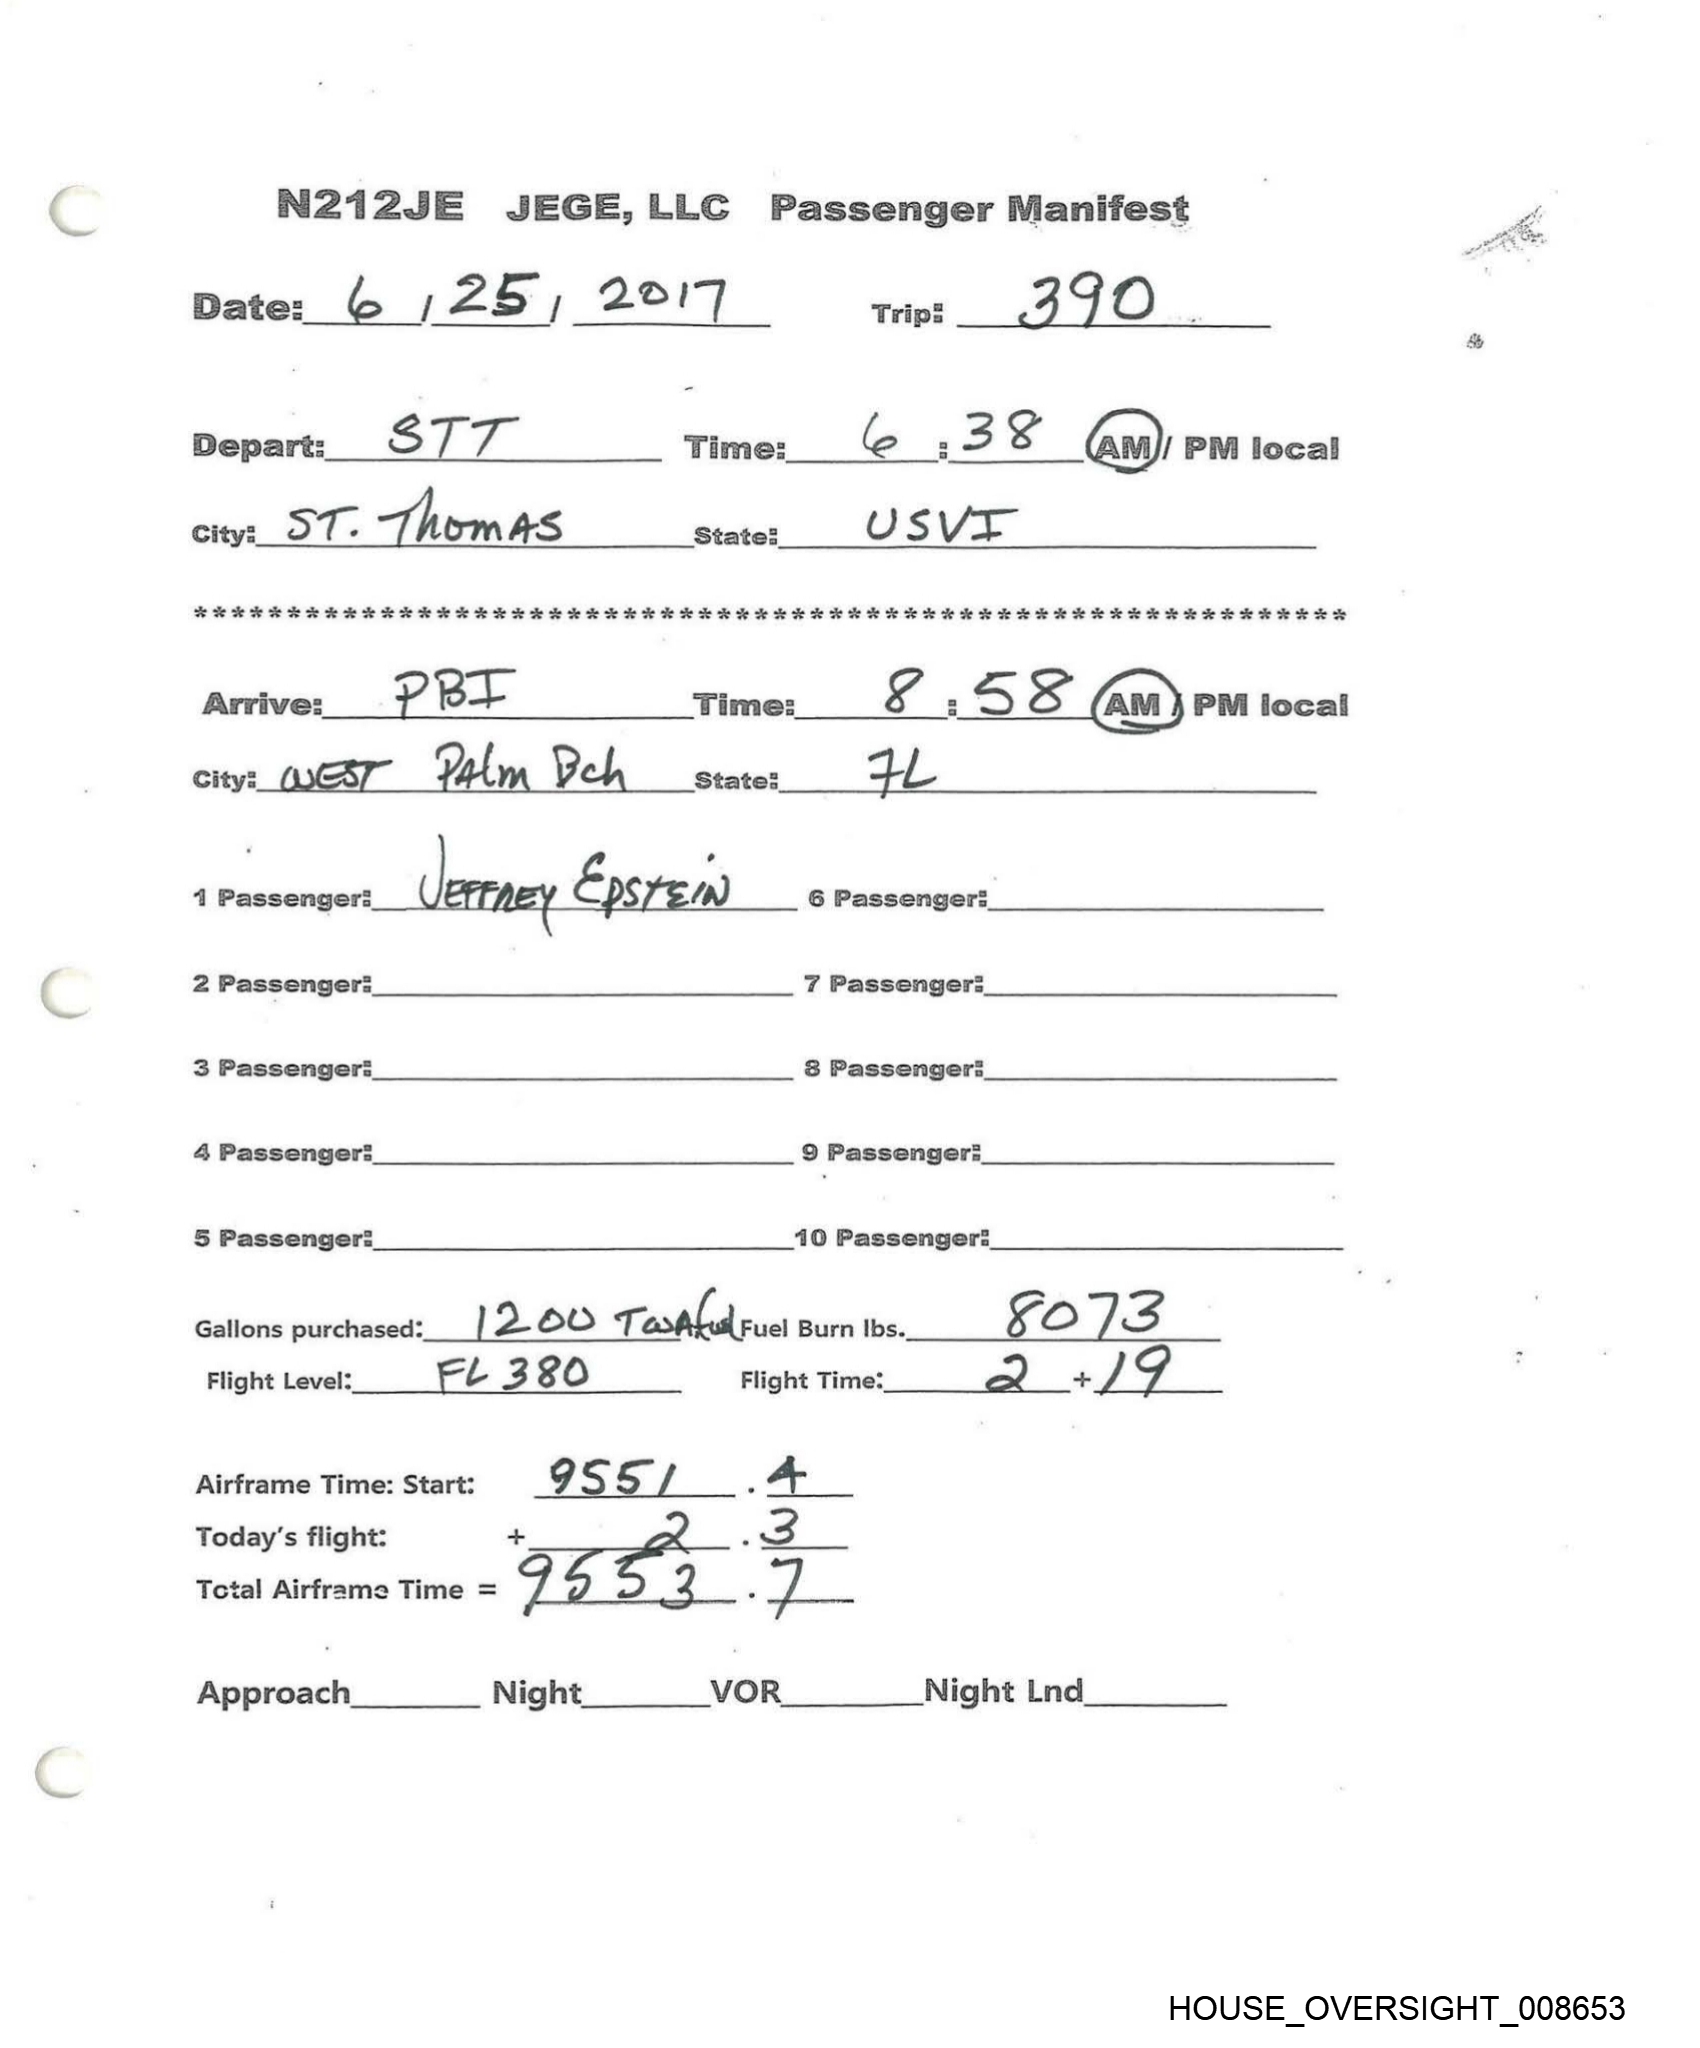 N212JE JEGE, LLC Passenger Manifest
Date: 6 / 25 / 2017 Trip: 390
Depart: STT Time: 6 : 38 AM / PM local
City: ST. THOMAS State: USVI
******************************************************************
Arrive: PBI Time: 8 : 58 AM / PM local
City: WEST PAlm Bch State: FL
1 Passenger: JEFFREY EPSTEIN 6 Passenger:
2 Passenger: 7 Passenger:
3 Passenger: 8 Passenger:
4 Passenger: 9 Passenger:
5 Passenger: 10 Passenger:
Gallons purchased: 1200 Fuel Burn lbs. 8073
Flight Level: FL 380 Flight Time: 2 + 19
Airframe Time: Start: 9551 . 4
Today's flight: + 2 . 3
Total Airframe Time = 9553 . 7
Approach Night VOR Night Lnd
HOUSE_OVERSIGHT_008653